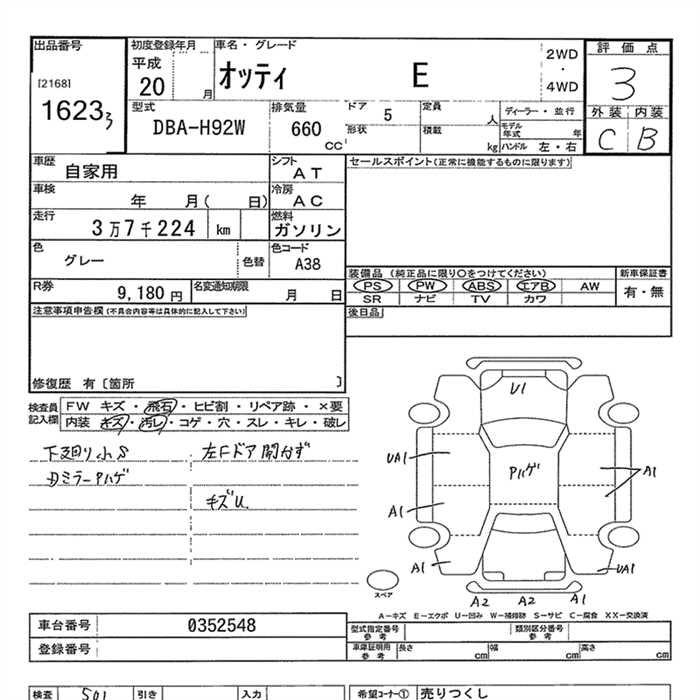 出品番号 初度登録年月 車名・グレード 評価点
[2168] 平成 20 月 オッティ E 2WD・4WD 3
1623 3
外装 内装
C B
型式 DBA-H92W 排気量 660 CC ドア 5 定員 人 ディーラー・並行
形状 積載 kg モデル年式 年 ハンドル 左・右
車歴 自家用 シフト AT セールスポイント(正常に機能するものに限ります)
車検 年 月( 日) 冷房 AC
走行 3万7千224 km 燃料 ガソリン
色 グレー 色替 色コード A38
装備品 (純正品に限り○をつけてください) 新車保証書
PS PW ABS エアB AW 有・無
SR ナビ TV カワ
R券 9,180 円 名変通知期限 月 日
注意事項申告欄(不具合内容等は具体的に記入して下さい) 後日品
修復歴 有〔箇所 〕
検査員記入欄 FW キズ・飛石・ヒビ割・リペア跡・×要
内装 キズ・汚レ・コゲ・穴・スレ・キレ・破レ
下廻り小S 左Fドア開かず
Dミラーアハゲ
キズU
U1
UA1 Pハゲ A1
A1
A1 UA1
A2 A2 A1
スペア
A-キズ E-エクボ U-凹み W-補修跡 S-サビ C-腐食 XX-交換済
車台番号 0352548 型式指定番号 参考 類別区分番号 参考
登録番号 車庫証明用 参考 長さ cm 幅 cm 高さ cm
検査 501 引き 入力 希望コーナー① 売りつくし